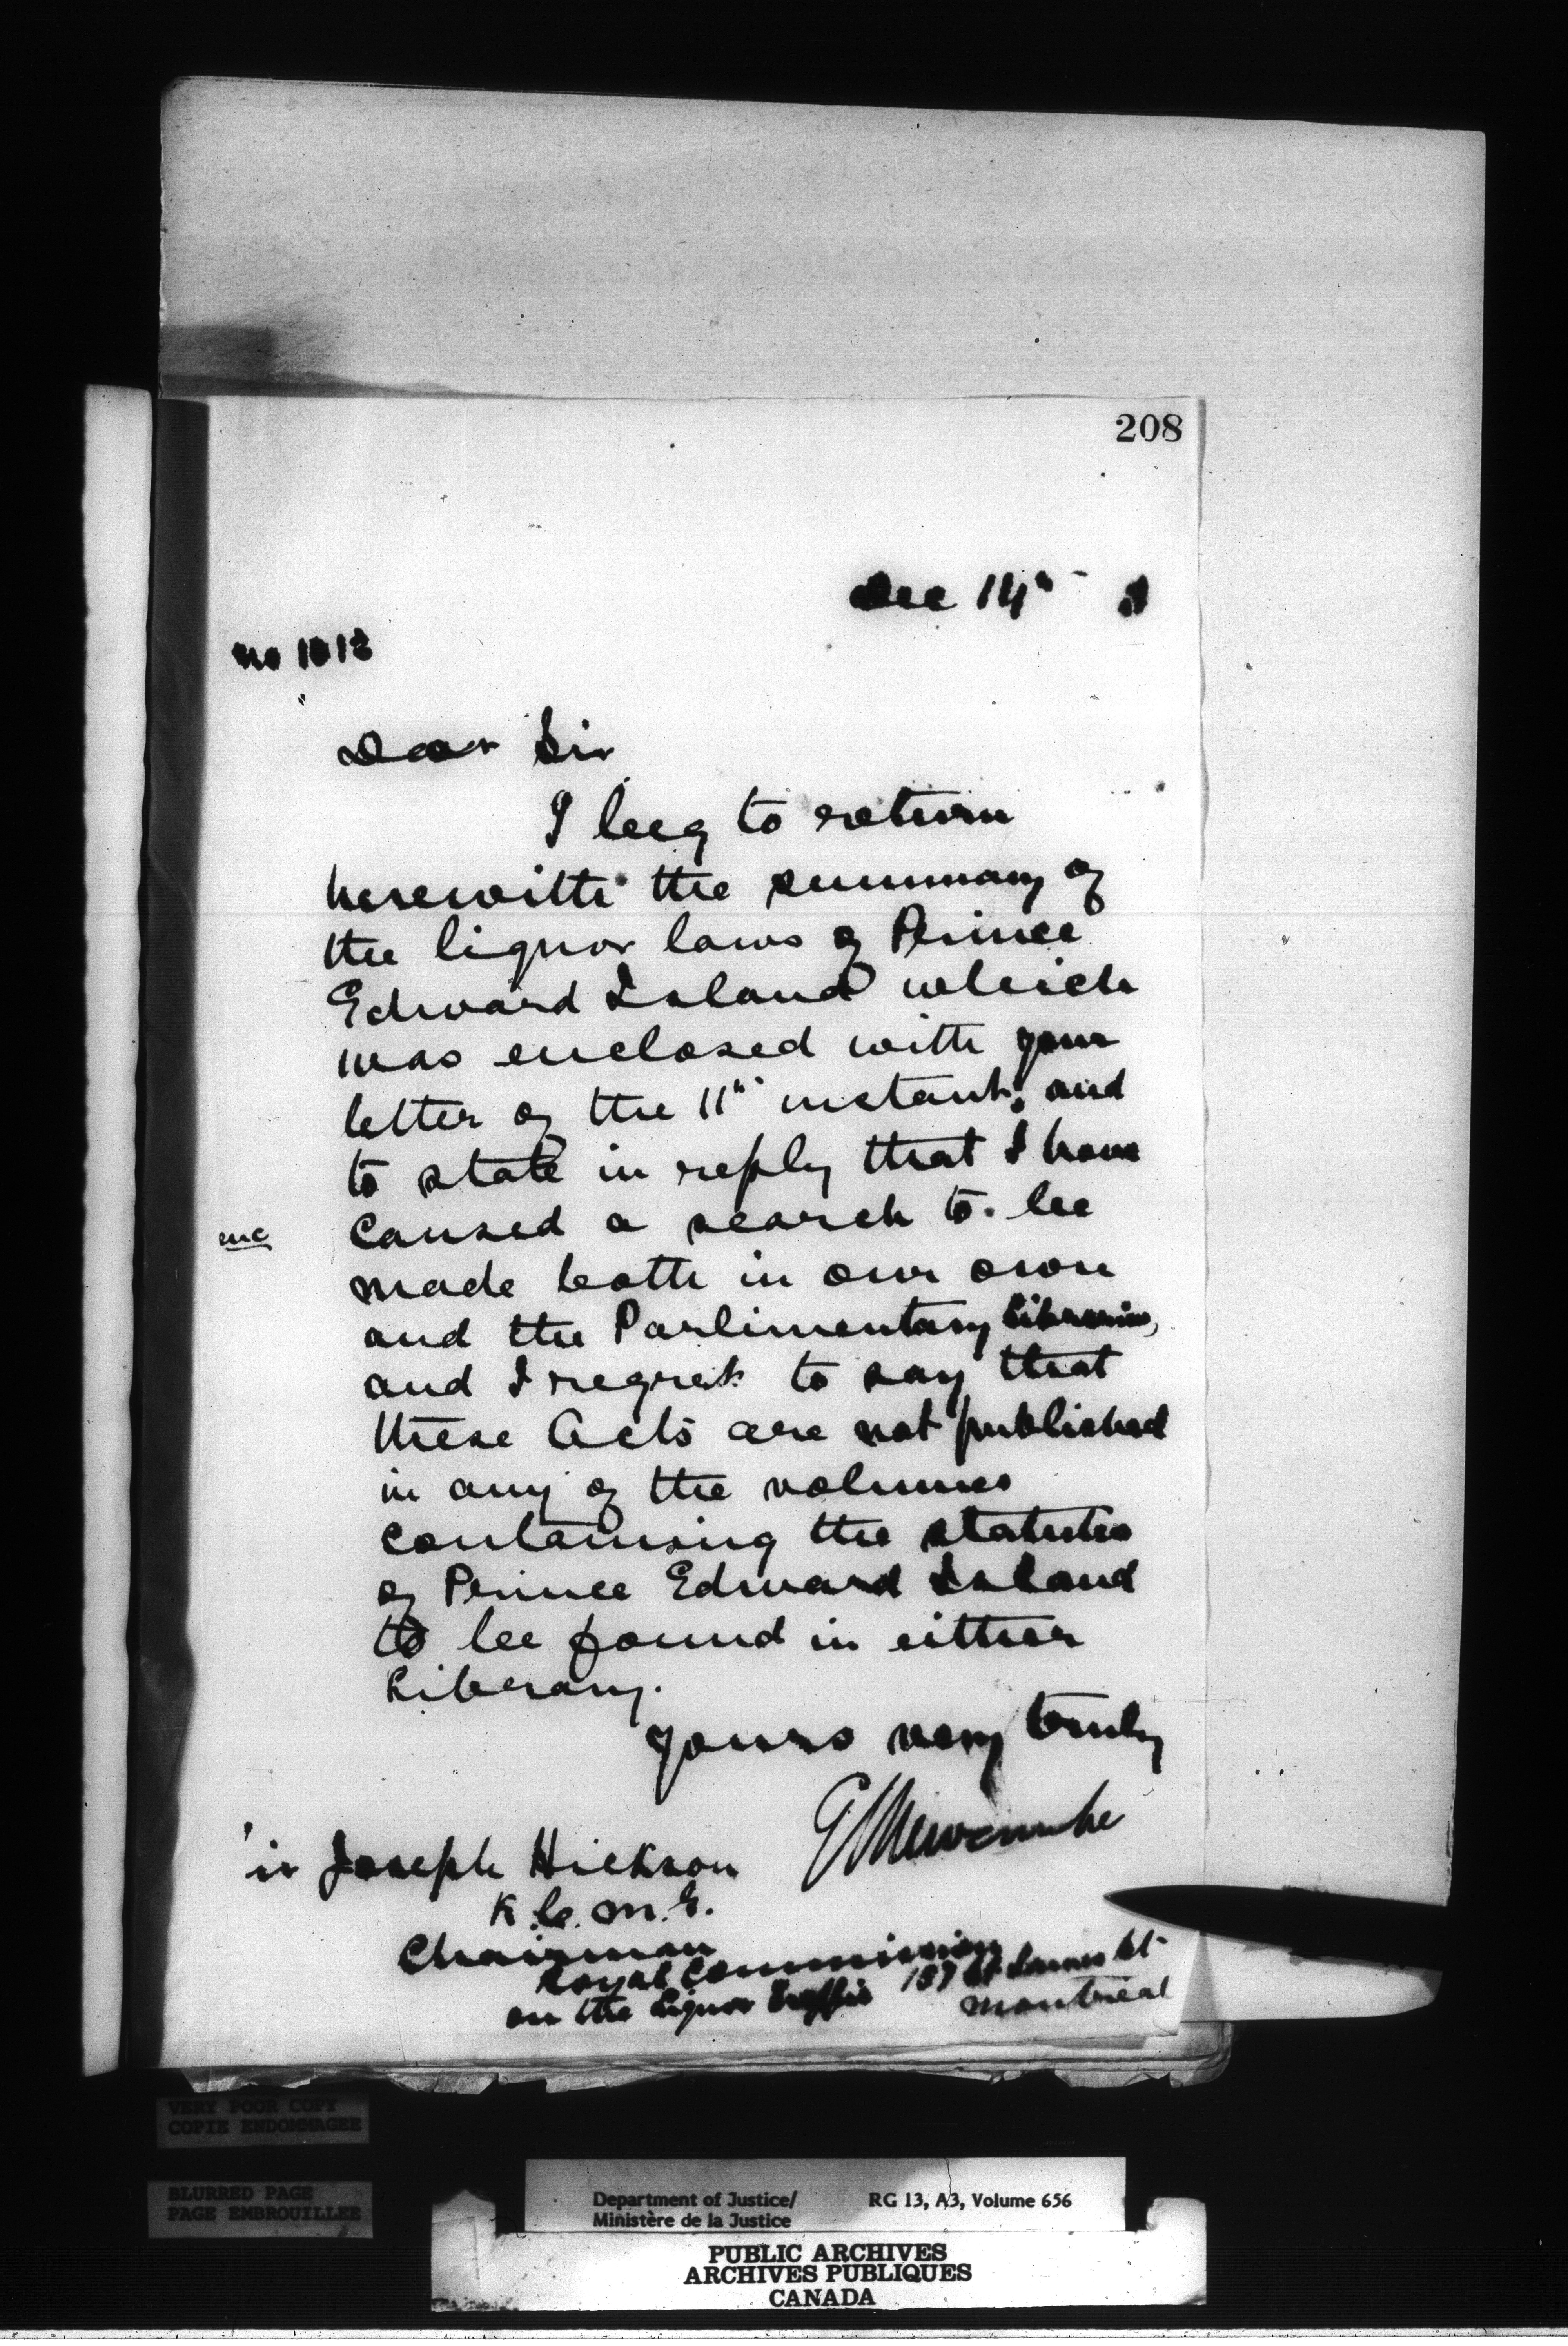 208
Dec 14th
No 1013
Dear Sir
I beg to return
herewith the summary of
the liquor laws of Prince
Edward Island which
was enclosed with your
letter of the 11th instant, and
to state in reply that I have
caused a search to be
made both in our own
and the Parlimentary Libraries,
and I regret to say that
these Acts are not published
in any of the volumes
containing the statutes
of Prince Edward Island
to be found in either
Library.
Yours very truly
E L Newcombe
ir Joseph Hickson
K.C.M.G.
Chairman
Royal Commission
on the Liquor Traffic
187 St James St
Montreal
VERY POOR COPY
COPIE ENDOMMAGEE
BLURRED PAGE
PAGE EMBROUILLEE
Department of Justice/ RG 13, A3, Volume 656
Ministère de la Justice
PUBLIC ARCHIVES
ARCHIVES PUBLIQUES
CANADA